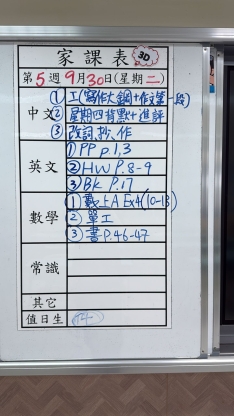 家課表 3D
第5週9月30日(星期二)
中文
① 工(寫作大綱+作文第一段)
② 星期四背默+進評
③ 改詞、抄、作
英文
① PP p.1,3
② HW P.8-9
③ Bk P.17
數學
① 數上A Ex4(10-13)
② 單工
③ 書P.46-47
常識
其它
值日生